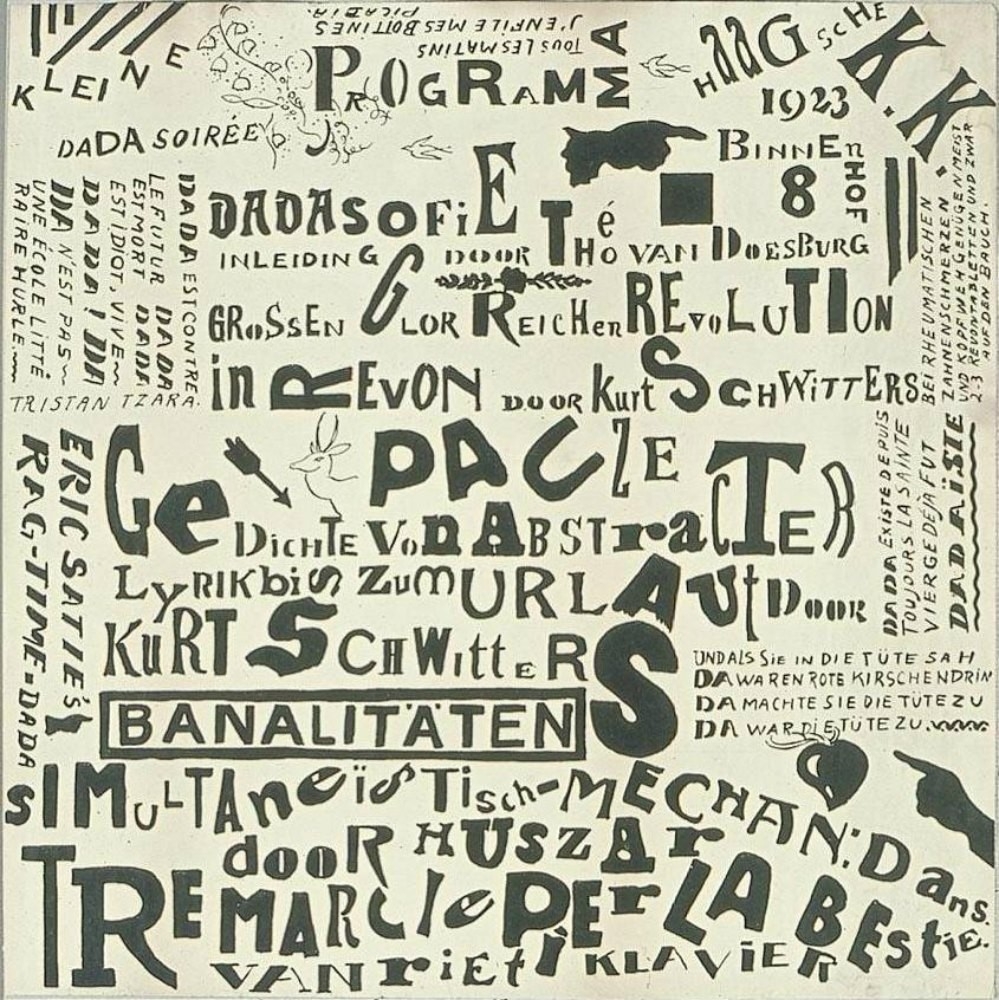 TOUS LES MATINS
J'ENFILE MES BOTTINES
PICABIA.
KLEINE
DADA SOIRÉE
PROGRAMMA
HAAGSCHE K.K.
1923
BINNENHOF 8
DADASOFiE
INLEIDING DOOR Théo VAN DOESBURG
GROSSEN GLORREICHEN REVOLUTION
in REVON DOOR Kurt SCHWITTERS.
DADA EST CONTRE
LE FUTUR DADA
EST MORT DADA
EST IDIOT, VIVE
DADA! DA
DA N'EST PAS
UNE ÉCOLE LITTÉ
RAIRE HURLE
TRISTAN TZARA.
BEI RHEUMATISCHEN
ZAHNENSCHMERZEN
UND KOPFWEH GENÜGEN MEIST
2-3 REVONTABLETTEN UND ZWAR
AUF DEN BAUCH.
DADA EXISTE DEPUIS
TOUJOURS LA SAINTE
VIERGE DÉJÀ FUT
DADAÏSTE
ERIC SATIE'S
RAG-TIME=DADA
Ge PAUZE
DICHTE VON ABSTraCTER
LyRIK biS ZumURLAUt DOOR
KuRT SCHWittERS
BANALITÄTEN
UND ALS SIE IN DIE TÜTE SAH
DA WAREN ROTE KIRSCHEN DRIN
DA MACHTE SIE DIE TÜTE ZU
DA WAR DIE TÜTE ZU.
SIMuLTAneïsTisch-MECHAN: Dans.
dooR HUSZAr
TRE MARCIe PEr LA BEStie.
VANriEtI KLAViER